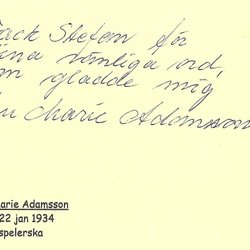 ack Stefan för
ina vänliga ord,
om gladde mig
Marie Adamsson
arie Adamsson
22 jan 1934
spelerska